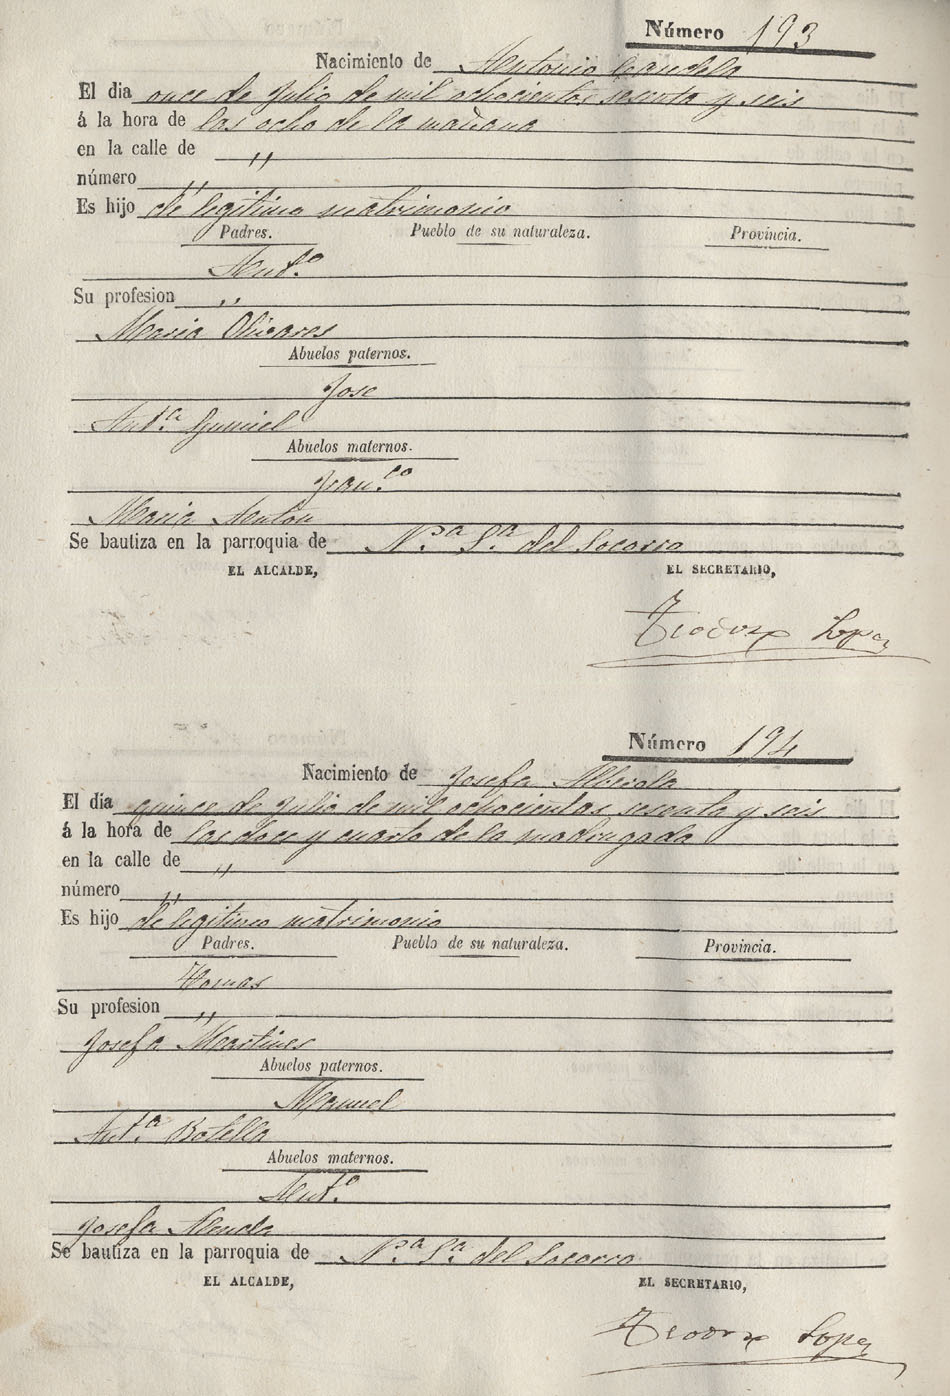 Número 193
Nacimiento de Antonio Candela
El dia once de Julio de mil ochocientos sesenta y seis
á la hora de las ocho de la mañana
en la calle de „
número „
Es hijo de legitimo matrimonio
Padres. Pueblo de su naturaleza. Provincia.
Ant.º
Su profesion „
Maria Olivares
Abuelos paternos.
Jose
Ant.ª Gumiel
Abuelos maternos.
Fran.co
Maria Anton
Se bautiza en la parroquia de N.ª S.ª del Socorro
EL ALCALDE, EL SECRETARIO,
Teodoro Lopez
Número 194
Nacimiento de Josefa Alberola
El día quince de Julio de mil ochocientos sesenta y seis
á la hora de las doce y cuarto de la madrugada
en la calle de „
número „
Es hijo de legitimo matrimonio
Padres. Pueblo de su naturaleza. Provincia.
Tomas
Su profesion „
Josefa Martines
Abuelos paternos.
Manuel
Ant.ª Botella
Abuelos maternos.
Ant.º
Josefa
Se bautiza en la parroquia de N.ª S.ª del Socorro
EL ALCALDE, EL SECRETARIO,
Teodoro Lopez